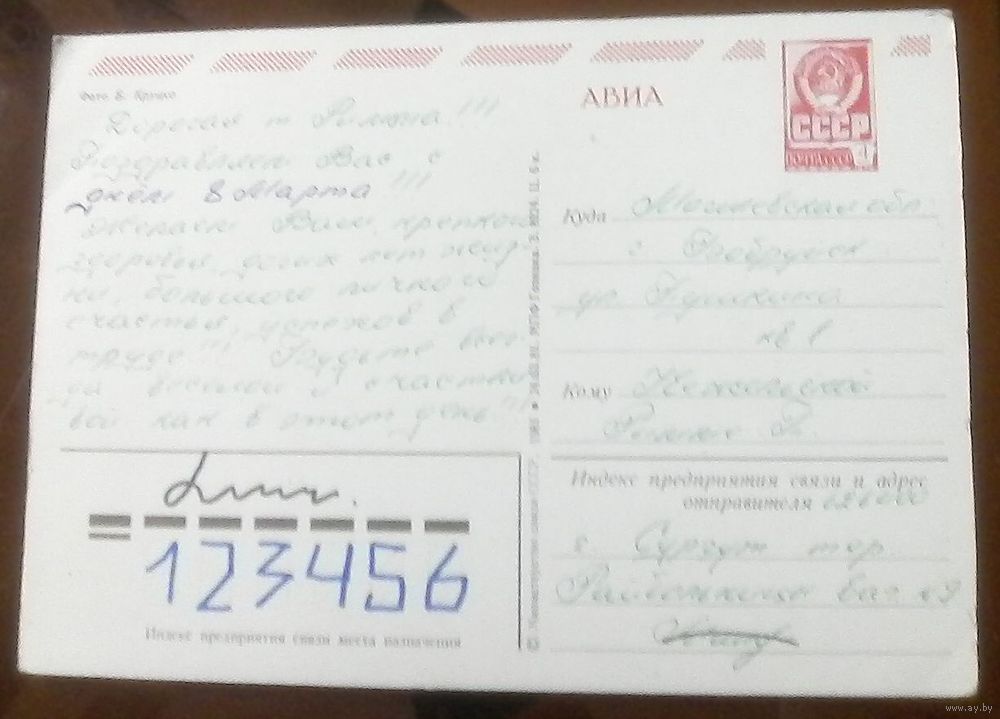 Фото В. Крупко
АВИА
СССР
ПОЧТА
Дорогая т Римма!!!
Поздравляем Вас с
днём 8 Марта!!!
Желаем Вам крепкого
здоровья, долгих лет жиз
ни, большого личного
счастья, успехов в
труде!!! Будьте всег
да веселой и счастли
вой как в этот день!!!
Куда
обл.
г. Бобруйск
ул. Пушкина
кв 1
Кому
Римме
Индекс предприятия связи и адрес
отправителя
г. Сургут тер.
123456
Индекс предприятия связи места назначения
www.ay.by